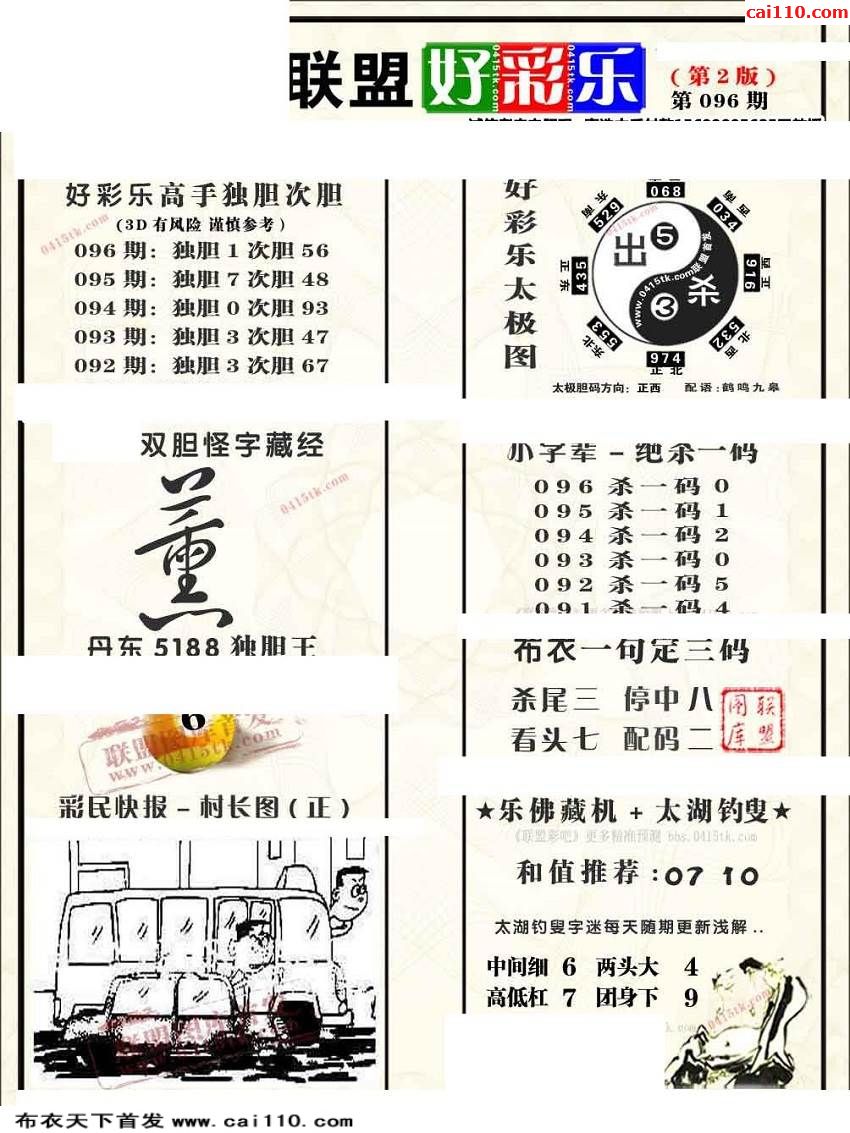 cai110.com
联盟 好彩乐
(第2版)
第 096 期
好彩乐高手独胆次胆
(3D 有风险 谨慎参考)
096 期：独胆 1 次胆 56
095 期：独胆 7 次胆 48
094 期：独胆 0 次胆 93
093 期：独胆 3 次胆 47
092 期：独胆 3 次胆 67
0415tk.com
好彩乐太极图
068
东南 529
西南 034
正东 435
正西 916
东北 553
西北 532
974
正北
出 5
杀 3
www.0415tk.com联盟首发
太极胆码方向：正西 配语：鹤鸣九皋
双胆怪字藏经
薰
0415tk.com
丹东 5188 独胆王
6
www.0415tk.com
小字辈－绝杀一码
096 杀一码 0
095 杀一码 1
094 杀一码 2
093 杀一码 0
092 杀一码 5
091 杀一码 4
布衣一句定三码
杀尾三 停中八
看头七 配码二
联盟图库
彩民快报－村长图（正）
★乐佛藏机 + 太湖钓叟★
《联盟彩吧》更多精准预测 bbs.0415tk.com
和值推荐 :07 10
太湖钓叟字迷每天随期更新浅解 ..
中间细 6 两头大 4
高低杠 7 团身下 9
0415tk.com
布衣天下首发 www.cai110.com